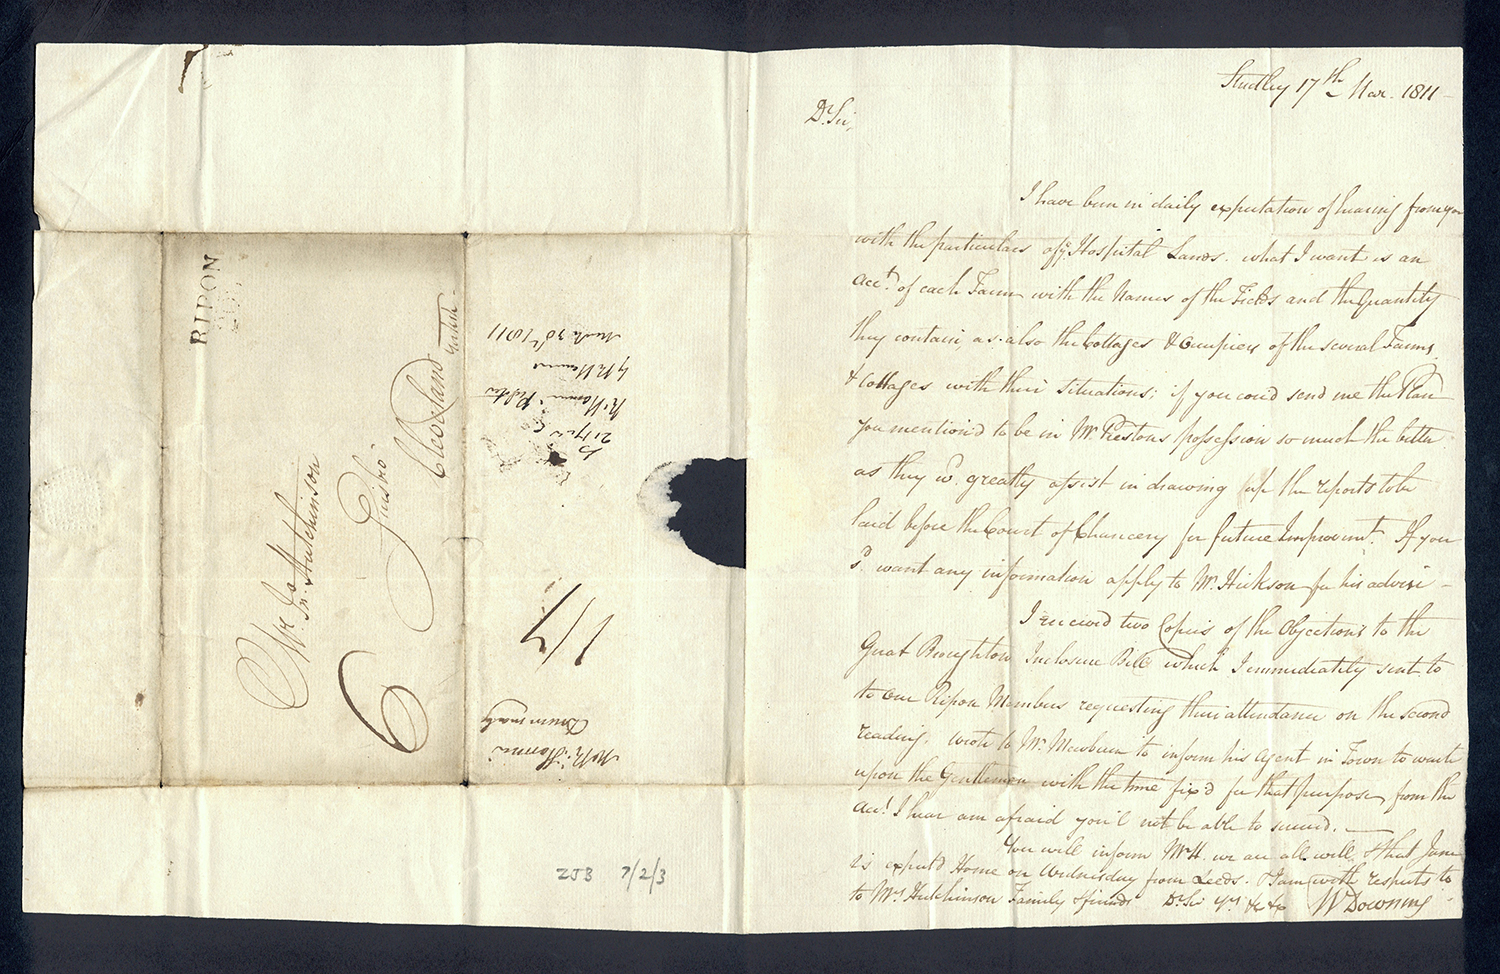 RIPON
Mr. Jno. Hutchinson
Guisbro'
Cleveland
Yorkshire
6
1/7
March 30th 1811
ZJB 7/2/3
Studley 17th Mar. 1811
Dr. Sir,
I have been in daily expectation of hearing from you
with the particulars of ye Hospital Lands. what I want is an
acct. of each Farm with the Names of the Fields and the Quantity
they contain, as also the Cottages & Occupiers of the several Farms
& Cottages with their situations; if you cou'd send me the Plan
you mention'd to be in Mr. Prestons possession so much the better
as they wd. greatly assist in drawing up the reports to be
laid before the Court of Chancery for future Improvemt. If you
sd. want any information apply to Mr. Hickson for his advice –
I received two Copies of the Objections to the
Great Broughton Inclosure Bill which I immediately sent to
to our Ripon Members requesting their attendance on the second
reading. wrote to Mr. Mewburn to inform his Agent in Town to wait
upon the Gentlemen with the time fix'd for that purpose, from the
acct. I hear am afraid you'l not be able to succeed. —
You will inform Mrs H. we are all well, & that Jane
is expectd Home on Wednesday from Leeds. I am with respects to
to Mrs Hutchinson Family & friends Dr. Sir Yrs. &c &c Wm Downing